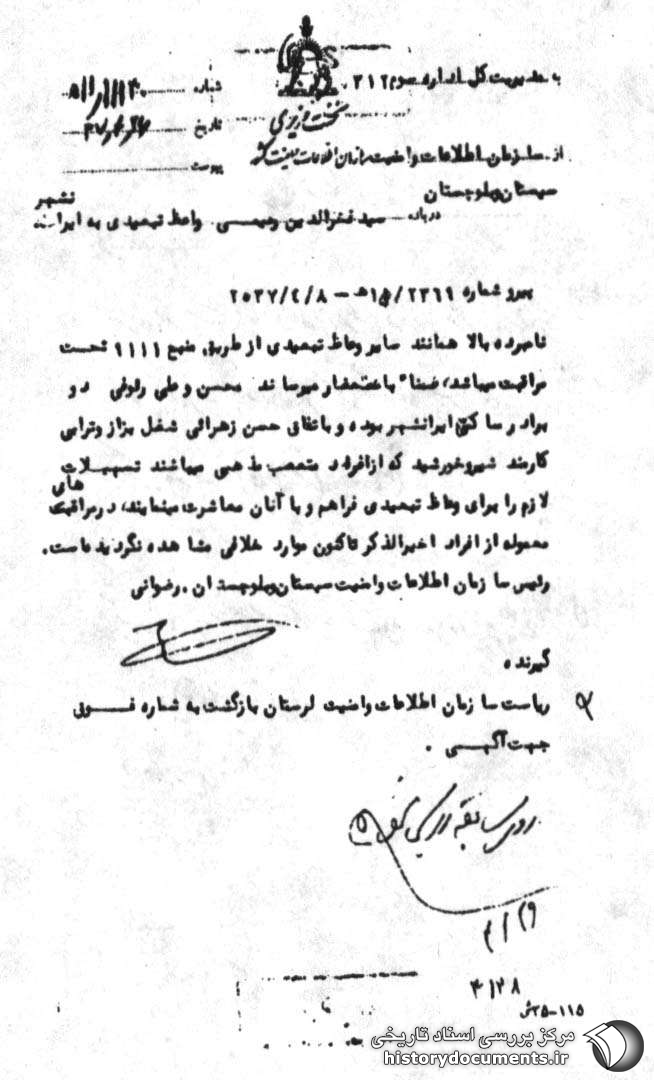 به مدیریت کل اداره سوم ۳۱۲
نخست وزیری
شماره
تاریخ
پیوست
از سازمان اطلاعات و امنیت سازمان اطلاعات و امنیت کشور
سیستان و بلوچستان
درباره سید فخرالدین رحیمی واعظ تبعیدی به ایرانشهر
پیرو شماره ۲۳۶۹/۱۵هـ - ۲۵۳۷/۴/۸
نامبرده بالا همانند سایر وعاظ تبعیدی از طریق منبع ۹۱۱۱ تحت
مراقبت میباشد، ضمناً باستحضار میرساند محسن و علی رئوفی دو
برادر ساکن ایرانشهر بوده و باتفاق حسن زهرائی شغل بزاز و ترابی
کارمند شیروخورشید که از افراد متعصب مذهبی میباشند تسهیلات
لازم را برای وعاظ تبعیدی فراهم و با آنان معاشرت مینمایند، در مراقبت های
معموله از افراد اخیرالذکر تاکنون موارد خلافی مشاهده نگردیده است.
رئیس سازمان اطلاعات و امنیت سیستان و بلوچستان . رضوانی
گیرنده
ریاست سازمان اطلاعات و امنیت لرستان بازگشت به شماره فوق
جهت آگهی .
۴/۲۸
۱۱۵-۲۵ش
مرکز بررسی اسناد تاریخی
historydocuments.ir